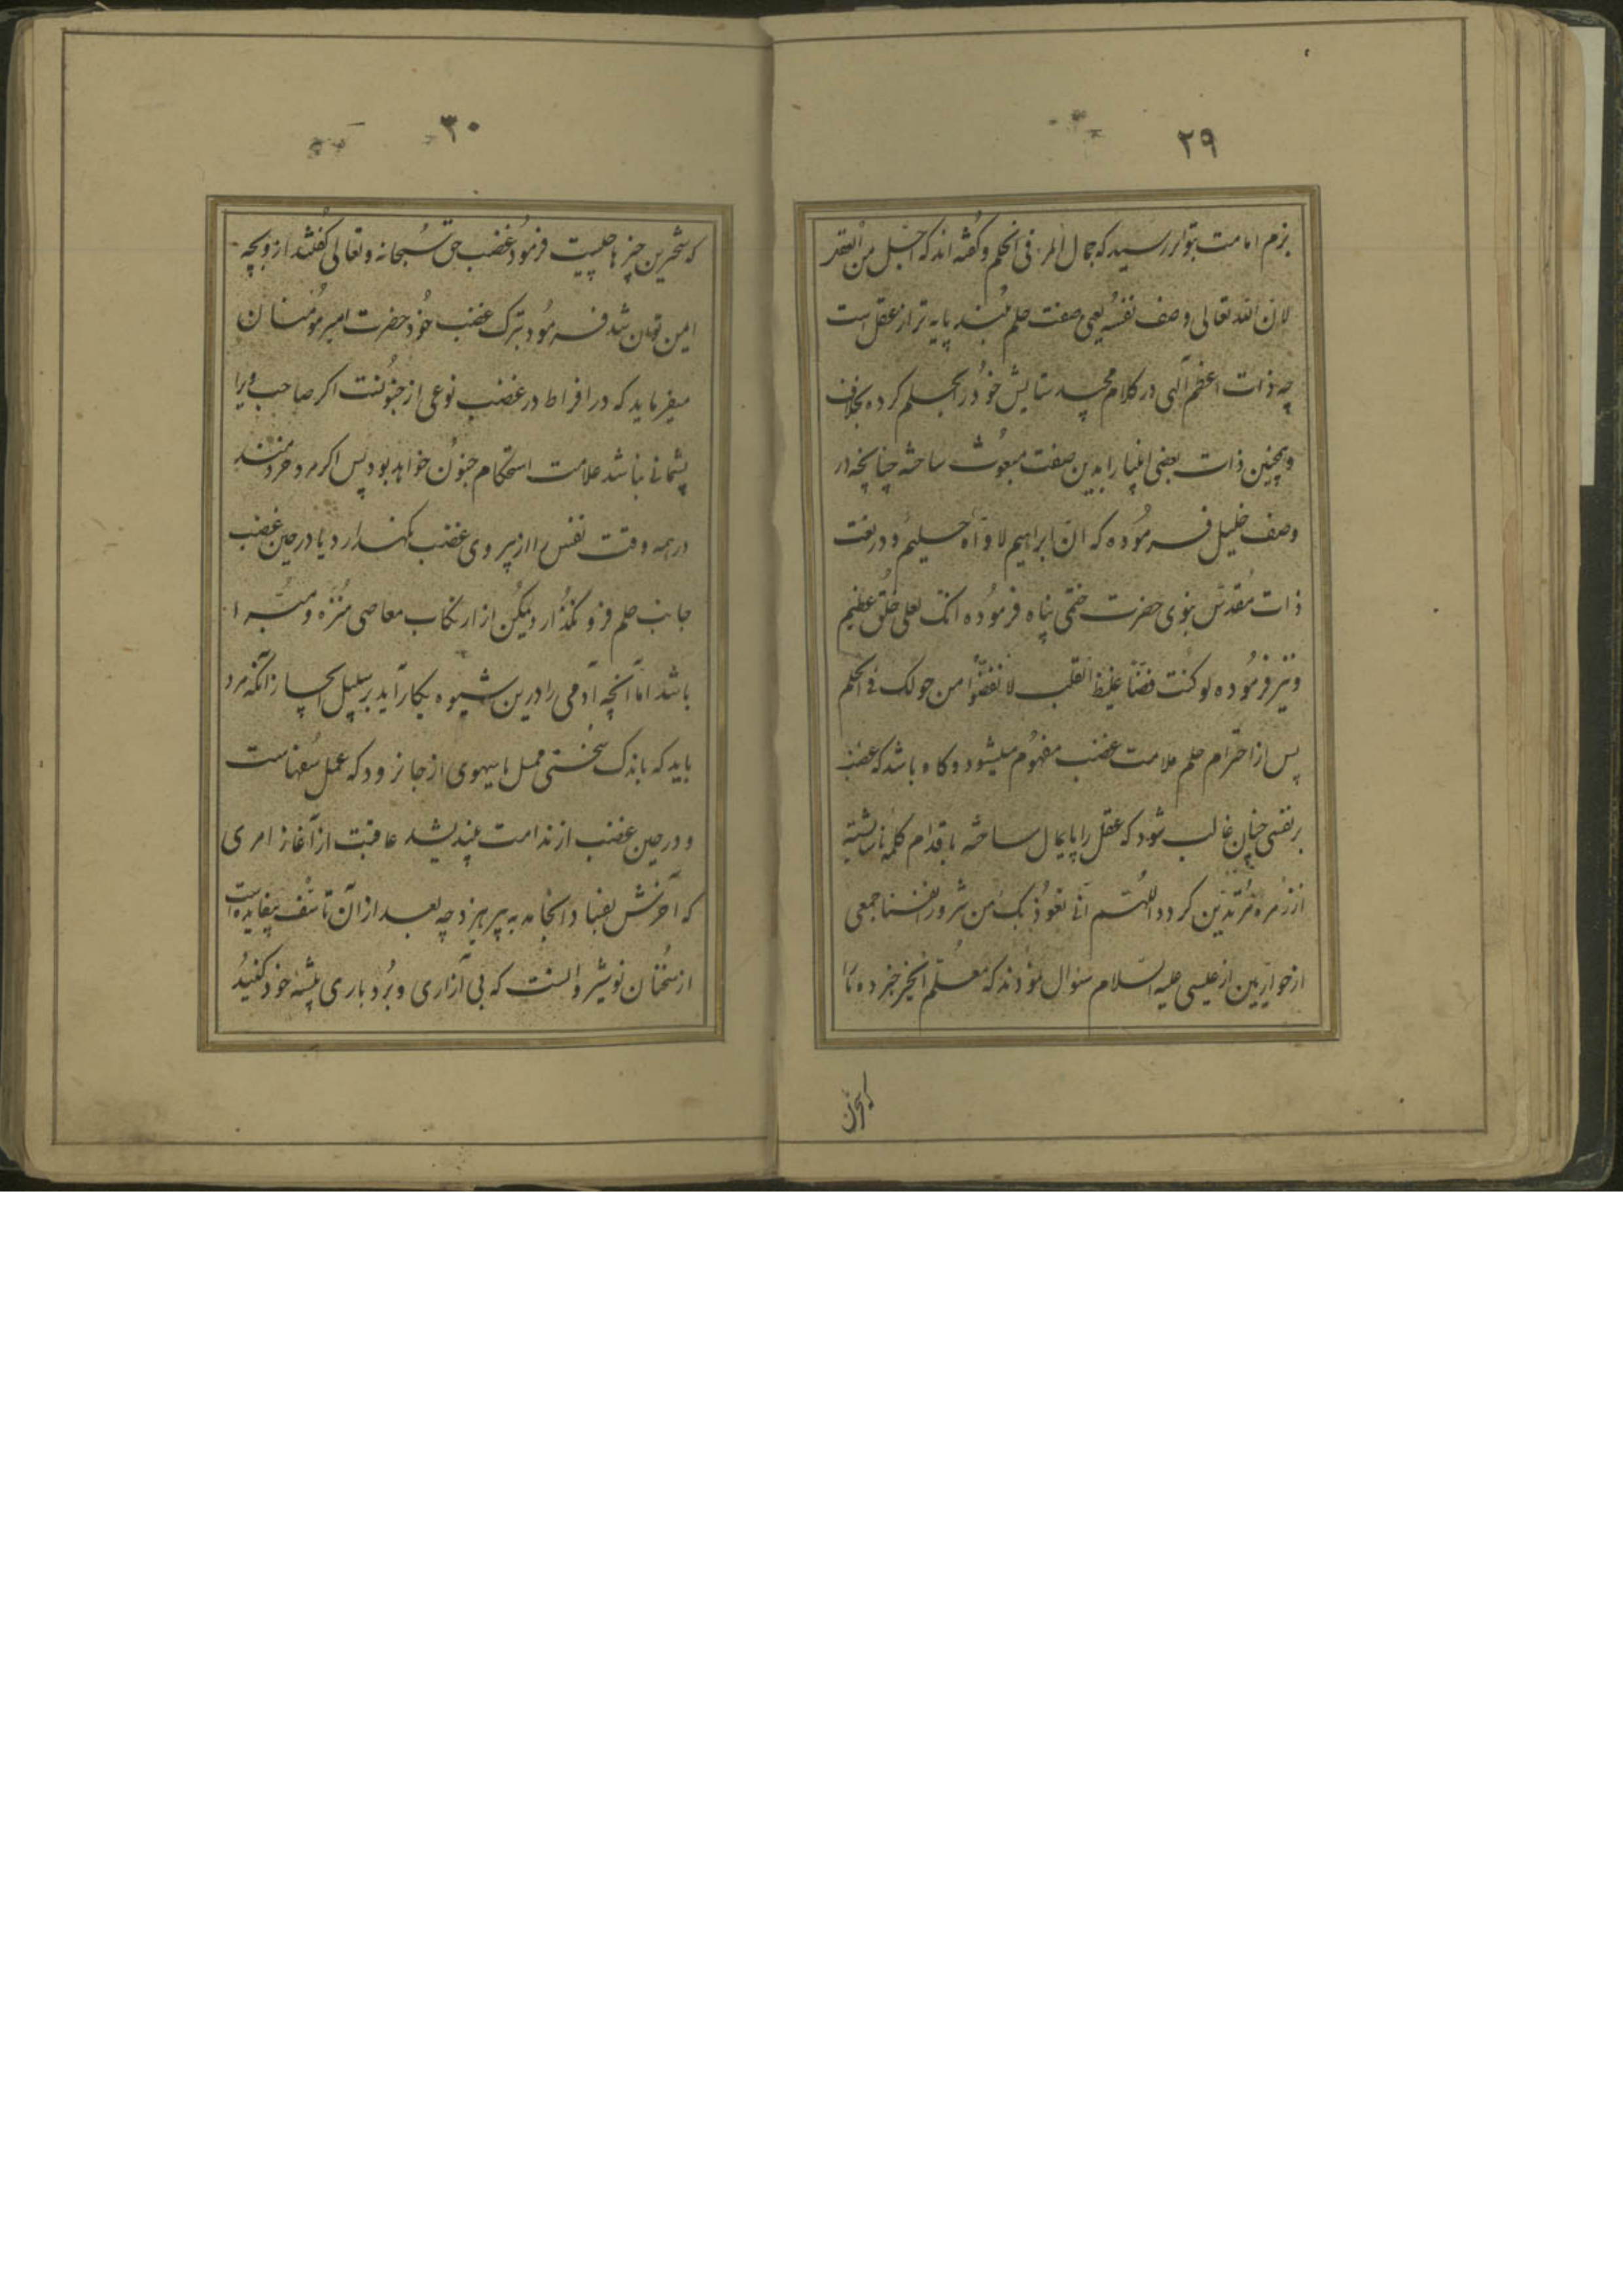 ۲۹
بزم امامت بتواتر رسیده که جمال المرء فی الحلم و گفته اند که اجل من العقل
لان الله تعالی وصف نفسه یعنی صفت حلم بلند پایه تر از عقل است
چه ذات اعظم الهی در کلام مجید ستایش خود را بحلم کرده بخلاف
و همچنین ذات بعضی انبیا را بدین صفت مبعوث ساخته چنانچه در
وصف خلیل فرموده که ان ابراهیم لاواه حلیم و در نعت
ذات مقدس نبوی حضرت ختمی پناه فرموده انک لعلی خلق عظیم
و نیز فرموده لو کنت فضا غلیظ القلب لا نفضوا من حولک فی الحلم
پس از احترام حلم علامت غضب مفهوم میشود و گاه باشد که غضب
بر نفسی چنان غالب شود که عقل را پایمال ساخته باقدام کلمه ناشایسته
از زمره مرتدین گردد اللهم انا نعوذ بک من شرور انفسنا جمعی
از حواریین از عیسی علیه السلام سئوال نمودند که معلم الخیر خبر ده ما را
۳۰
که سختترین چیزها چیست فرمود غضب حق سبحانه و تعالی گفتند از و بچه
امن توان شد فرمود بترک غضب خود حضرت امیر مومنان
میفرماید که در افراط در غضب نوعی از جنونست اگر صاحب ویرا
پشمانی نباشد علامت استحکام جنون خواهد بود پس اگر مرد خردمند
در همه وقت نفس را از پیروی غضب نگهدارد یا در حین غضب
جانب حلم فرو نگذارد لیکن از ارتکاب معاصی منزه و مبرا
باشد اما آنچه آدمی را درین شیوه بکار آید بر سبیل ایجاز آنکه مرد
باید که باندک سختی محمل یا سهوی از جا نرود که عمل سفهاست
و در حین غضب از ندامت بیندیشد عاقبت از آغاز امری
که آخرش بفساد انجامد به پرهیزد چه بعد از آن تاسف بیفایده است
از سخنان نوشیروانست که بی آزاری و بردباری پیشه خود کنید